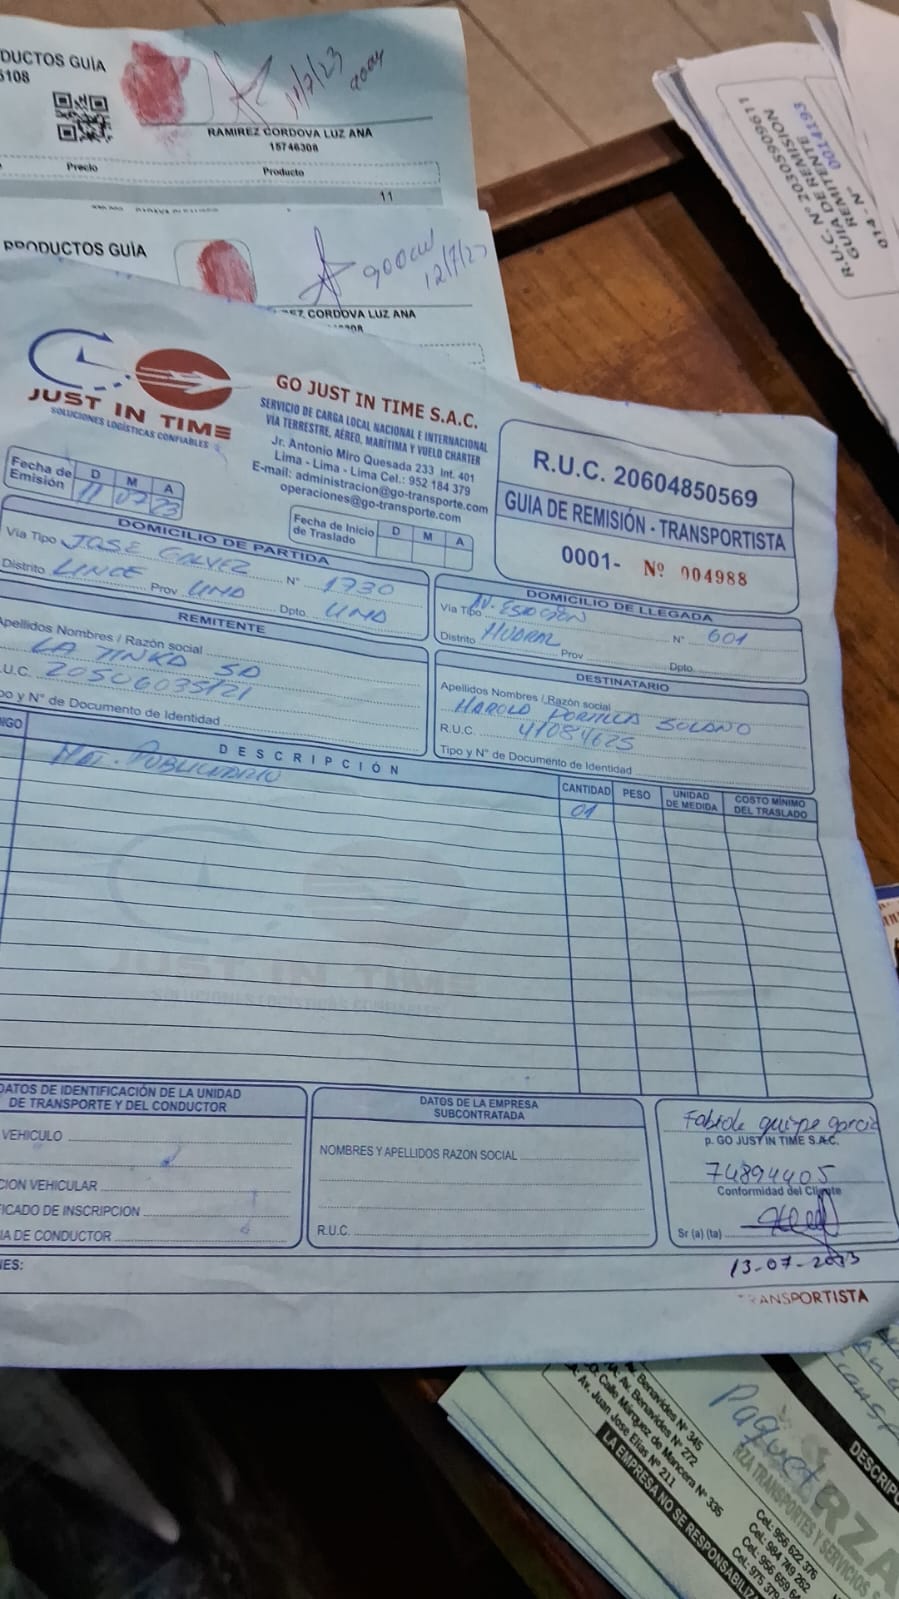 PRODUCTOS GUÍA
11/7/23
RAMIREZ CORDOVA LUZ ANA
15746308
Precio
Producto
11
PRODUCTOS GUÍA
12/7/23
CORDOVA LUZ ANA
R.U.C. Nº 20305909611
GUIA DE REMISION
REMITENTE
014 - Nº 0014193
JUST IN TIME
SOLUCIONES LOGÍSTICAS CONFIABLES
GO JUST IN TIME S.A.C.
SERVICIO DE CARGA LOCAL NACIONAL E INTERNACIONAL
VÍA TERRESTRE, AÉREO, MARÍTIMA Y VUELO CHARTER
Jr. Antonio Miro Quesada 233 Int. 401
Lima - Lima - Lima Cel.: 952 184 379
E-mail: administracion@go-transporte.com
operaciones@go-transporte.com
R.U.C. 20604850569
GUIA DE REMISIÓN - TRANSPORTISTA
0001- Nº 004988
Fecha de Emisión D M A
11 07 23
Fecha de Inicio de Traslado D M A
DOMICILIO DE PARTIDA
Vía Tipo JOSE GALVEZ Nº 1730
Distrito LINCE Prov LIMA Dpto LIMA
DOMICILIO DE LLEGADA
Vía Tipo AV. ESTACION Nº 601
Distrito HUARAL Prov Dpto
REMITENTE
Apellidos Nombres / Razón social
LA TINKA SA
R.U.C. 20506035121
Tipo y Nº de Documento de Identidad
DESTINATARIO
Apellidos Nombres / Razón social
HAROLD PORTILLA SOLANO
R.U.C. 41084625
Tipo y Nº de Documento de Identidad
DESCRIPCIÓN CANTIDAD PESO UNIDAD DE MEDIDA COSTO MÍNIMO DEL TRASLADO
MAT. PUBLICITARIO 01
JUST IN TIME
SOLUCIONES LOGÍSTICAS CONFIABLES
DATOS DE IDENTIFICACIÓN DE LA UNIDAD
DE TRANSPORTE Y DEL CONDUCTOR
VEHICULO
CION VEHICULAR
FICADO DE INSCRIPCION
IA DE CONDUCTOR
NES:
DATOS DE LA EMPRESA
SUBCONTRATADA
NOMBRES Y APELLIDOS RAZON SOCIAL
R.U.C.
Fabiola quispe garcia
p. GO JUST IN TIME S.A.C.
74894405
Conformidad del Cliente
Sr (a) (ta)
13-07-2023
TRANSPORTISTA
Benavides Nº 345
Av. Benavides Nº 272
Calle Márquez de Mancera Nº 335
Av. Juan Jose Elias Nº 211
LA EMPRESA NO SE RESPONSABILIZA
Cel: 956 622 376
Cel: 984 749 262
Cel: 956 659 6
Cel: 975 379
Paquete
RZA TRANSPORTES Y SERVICIOS
DESCRIPC